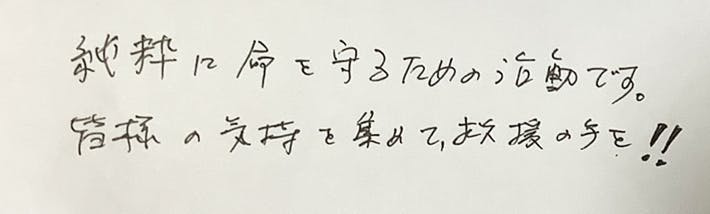 純粋に命を守るための活動です。
皆様の気持を集めて、救援の手を!!